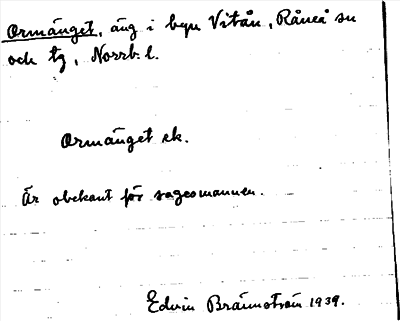 Ormänget, äng i byn Vitån, Råneå sn
och tg, Norrb. l.
Ormänget ek.
Är obekant för sagesmannen.
Edvin Brännström 1939.